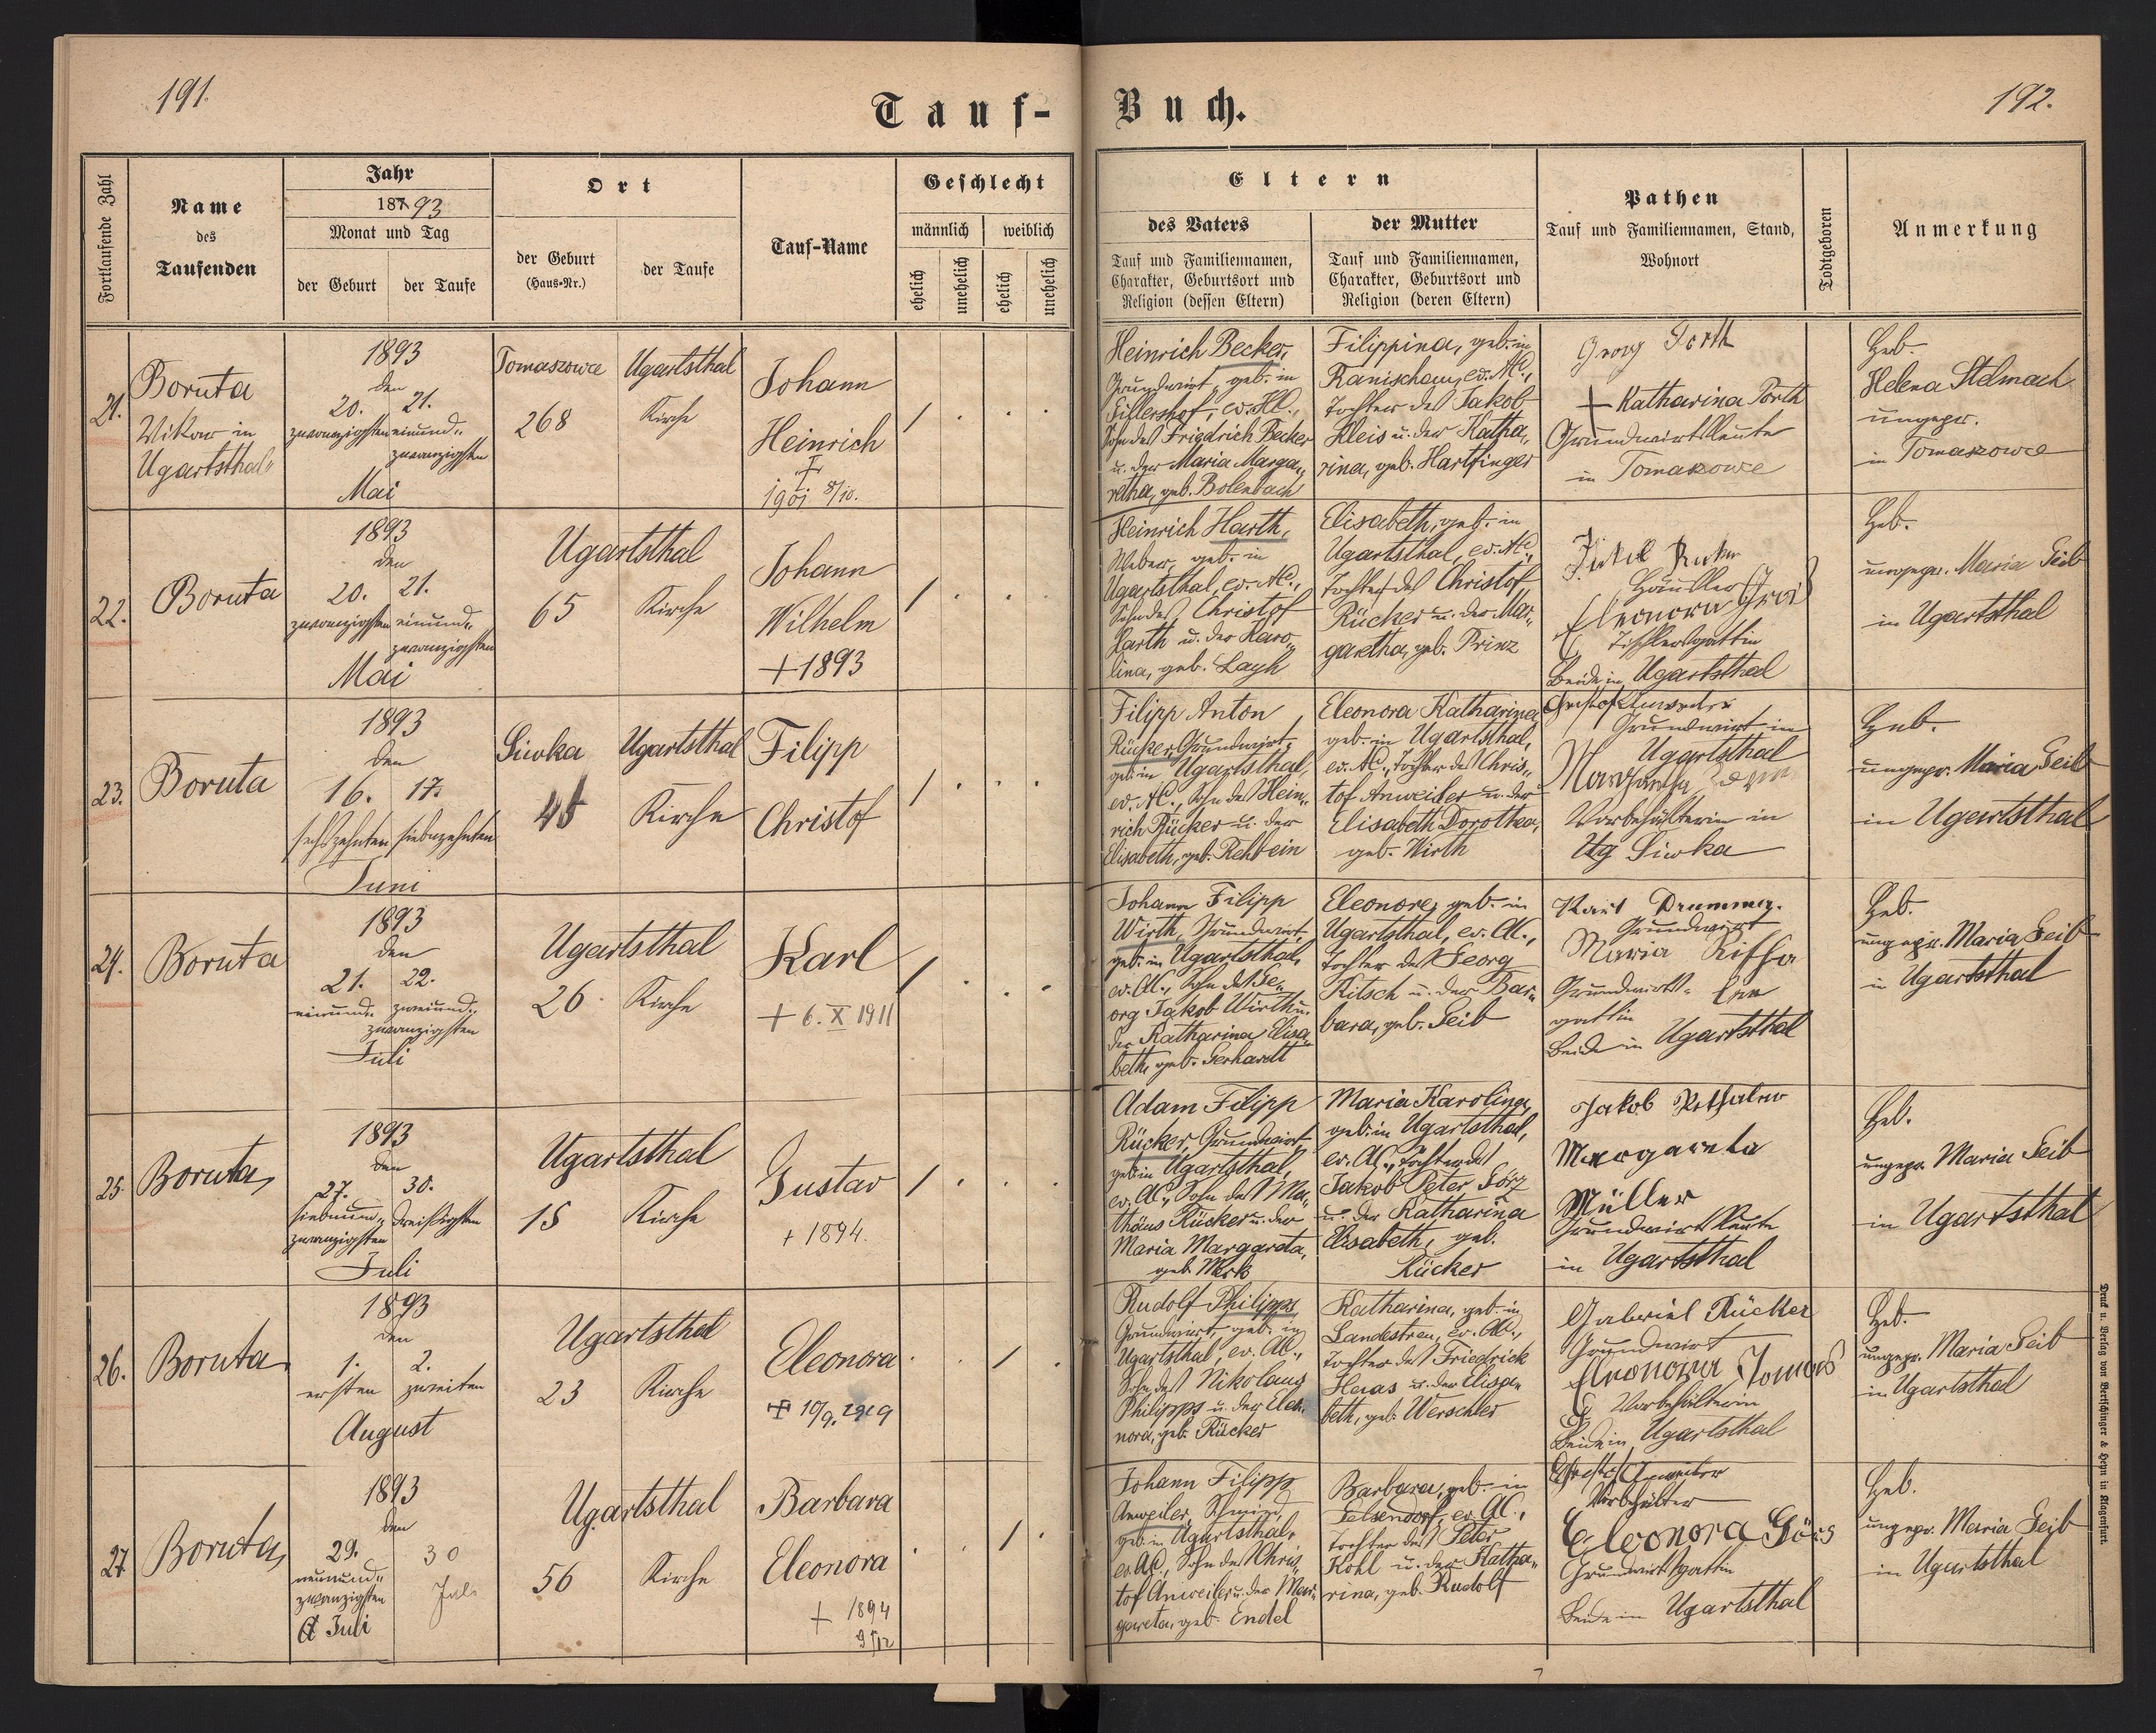 191.
Tauf-
Fortlaufende Zahl
Name
des
Taufenden
Jahr
187 93
Monat und Tag
der Geburt
der Taufe
Ort
der Geburt
(Haus-Nr.)
der Taufe
Tauf-Name
Geschlecht
männlich
weiblich
ehelich
unehelich
ehelich
unehelich
Buch.
192.
Eltern
des Vaters
Tauf und Familiennamen,
Charakter, Geburtsort und
Religion (dessen Eltern)
der Mutter
Tauf und Familiennamen,
Charakter, Geburtsort und
Religion (deren Eltern)
Pathen
Tauf und Familiennamen, Stand,
Wohnort
Todtgeboren
Anmerkung
21.
Boruta
Vikar in
Ugartsthal
1893
den
20. 21.
zwanzigsten einund-
zwanzigsten
Mai
Tomaszowce
268
Ugartsthal
Kirche
Johann
Heinrich
+
1901 8/10.
Heinrich Becker,
Grundwirt, geb. in
ev. AC.,
Sohn des Friedrich Becker
u. der Maria Marga-
retha, geb. Bolenbach
Filippina, geb. in
ev. AC.,
Tochter des Jakob
Kleis u. der Katha-
rina, geb. Hartfinger
Georg Porth
+ Katharina Porth
Grundwirtsleute
in Tomaszowce
Heb.
Helena Stelmach
ungepr.
in Tomaszowce
22.
Boruta
1893
den
20. 21.
zwanzigsten einund-
zwanzigsten
Mai
Ugartsthal
65 Kirche
Johann
Wilhelm
+ 1893
Heinrich Harth,
Weber, geb. in
Ugartsthal, ev. AC.,
Sohn des Christof
Harth u. der Karo-
lina, geb. Layh
Elisabeth, geb. in
Ugartsthal, ev. AC.,
Tochter des Christof
Rücker u. der Mar-
garetha, geb. Prinz
Häusler
Eleonora
Tischlersgattin
Beide in Ugartsthal
Heb.
ungepr. Maria Seib
in Ugartsthal
23.
Boruta
1893
den
16. 17.
sechszehnten siebenzehnten
Juni
Siwka
Ugartsthal
Kirche
Filipp
Christof
Filipp Anton
Rücker, Grundwirt,
geb. in Ugartsthal,
ev. AC., Sohn des Hein-
rich Rücker u. der
Elisabeth, geb. Rehbein
Eleonora Katharina
geb. in Ugartsthal,
ev. AC., Tochter des Chris-
tof Anweiler u. der
Elisabeth Dorothea,
geb. Wirth
Christof Anweiler
Grundwirt in
Ugartsthal
Margaretha
Vorbehälterin in
Siwka
Heb.
ungepr. Maria Seib
in Ugartsthal
24.
Boruta
1893
den
21. 22.
einund- zweiund-
zwanzigsten
Juli
Ugartsthal
26 Kirche
Karl
+ 6. X 1911
Johann Filipp
Wirth, Grundwirt,
geb. in Ugartsthal,
ev. AC., Sohn des Ge-
org Jakob Wirth u.
der Katharina Elisa-
beth, geb. Gerhardt
Eleonore, geb. in
Ugartsthal, ev. AC.,
Tochter des Georg
Ritsch u. der Bar-
bara, geb. Seib
Karl Drummer
Grundwirt
Maria
Grundwirts-
gattin
Beide in Ugartsthal
Heb.
ungepr. Maria Seib
in Ugartsthal
25.
Boruta
1893
den
27. 30.
siebenund- dreissigsten
zwanzigsten
Juli
Ugartsthal
15 Kirche
Gustav
+ 1894.
Adam Filipp
Rücker, Grundwirt
geb. in Ugartsthal,
ev. AC., Sohn des Ma-
thäus Rücker u. der
Maria Margareta,
geb. Merk
Maria Karolina,
geb. in Ugartsthal,
ev. AC., Tochter des
Jakob Peter Görz
u. der Katharina
Elisabeth, geb.
Rücker
Jakob
Margareta
Müller
Grundwirtsleute
in Ugartsthal
Heb.
ungepr. Maria Seib
in Ugartsthal
26.
Boruta
1893
den
1. 2.
ersten zweiten
August
Ugartsthal
23 Kirche
Eleonora
+ 10/9. 1919
Rudolf Philipps
Grundwirt, geb. in
Ugartsthal, ev. AC.,
Sohn des Nikolaus
Philipps u. der Eleo-
nora, geb. Rücker
Katharina, geb. in
Landestreu, ev. AC.,
Tochter des Friedrich
Heras u. der Elisa-
beth, geb. Werschler
Gabriel Rücker
Grundwirt
Eleonora
Vorbehälterin
Beide in Ugartsthal
Heb.
ungepr. Maria Seib
in Ugartsthal
27.
Boruta
1893
den
29. 30
neunund-
zwanzigsten
Juli
Juli
Ugartsthal
56 Kirche
Barbara
Eleonora
+ 1894
9/12
Johann Filipp
Anweiler, Schmied,
geb. in Ugartsthal,
ev. AC., Sohn des Chris-
tof Anweiler u. der Mar-
gareta, geb. Endel
Barbara, geb. in
Felsendorf, ev. AC.,
Tochter des Peter
Kohl u. der Katha-
rina, geb. Rudolf
Christof Anweiler
Vorbehälter
Eleonora Görz
Grundwirtsgattin
Beide in Ugartsthal
Heb.
ungepr. Maria Seib
in Ugartsthal
Druck u. Verlag von Bertschinger & Heyn in Klagenfurt.